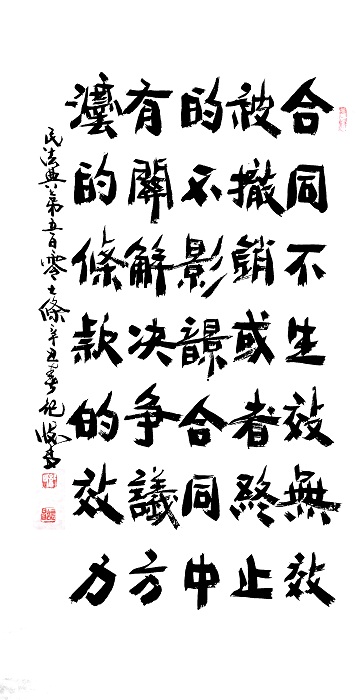 合同不生效無效
被撤銷或者終止
的不影響合同中
有關解决争議方
灋的條款的效力
民法典第五百零七條辛丑春